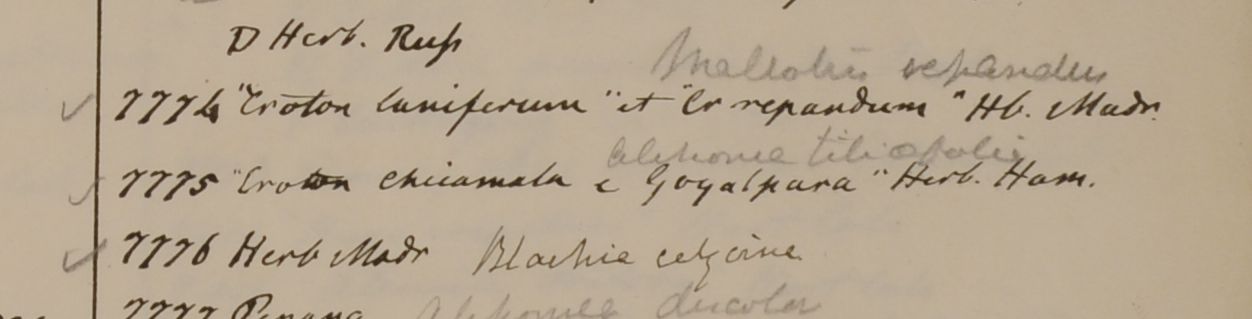 D Herb. Russ
Mallotus repandus
7774 "Croton laniferum" et "Cr repandum" Hb. Madr.
tiliaefolia
7775 "Croton chiamala e Goyalpara" Herb. Ham.
7776 Herb Madr Blachia calycina
7777 Penang discolor